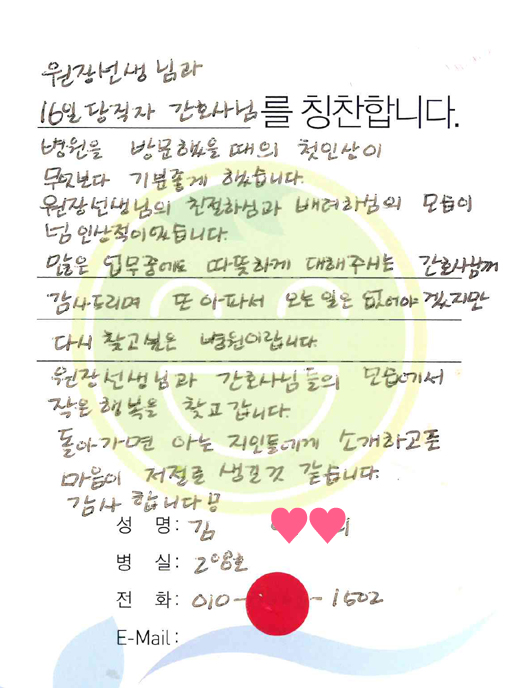 원장선생님과
16일 당직자 간호사님 를 칭찬합니다.
병원을 방문했을때의 첫인상이
무엇보다 기분좋게 했습니다.
원장선생님의 친절하심과 배려하심의 모습이
넘 인상적이였습니다.
많은 업무중에도 따뜻하게 대해주시는 간호사님께
감사드리며 또 아파서 오는일은 없어야 겠지만
다시 찾고싶은 병원이랍니다.
원장선생님과 간호사님들의 모습에서
작은 행복을 찾고 갑니다.
돌아가면 아는 지인들에게 소개하고픈
마음이 저절로 생길것 같습니다.
감사 합니다!!
성 명: 김
병 실: 208호
전 화: 010- -1502
E-Mail: